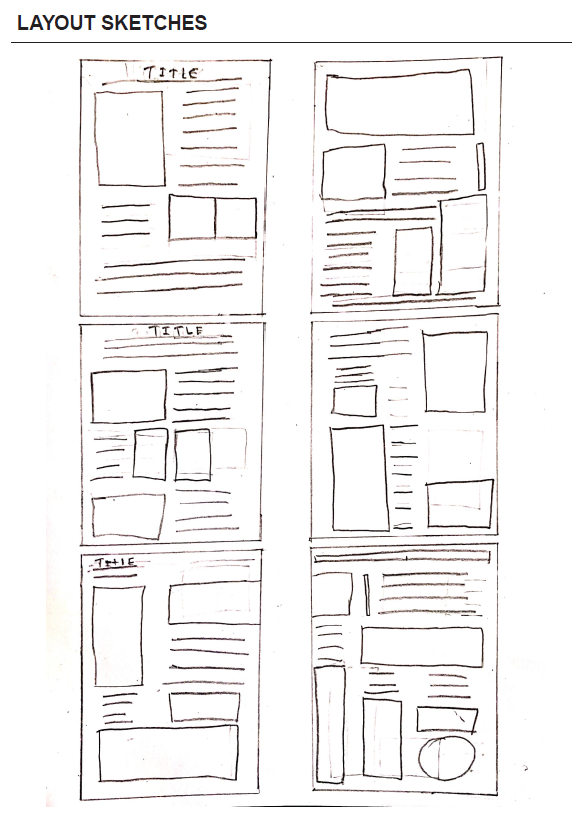 LAYOUT SKETCHES
TITLE
TITLE
TITLE